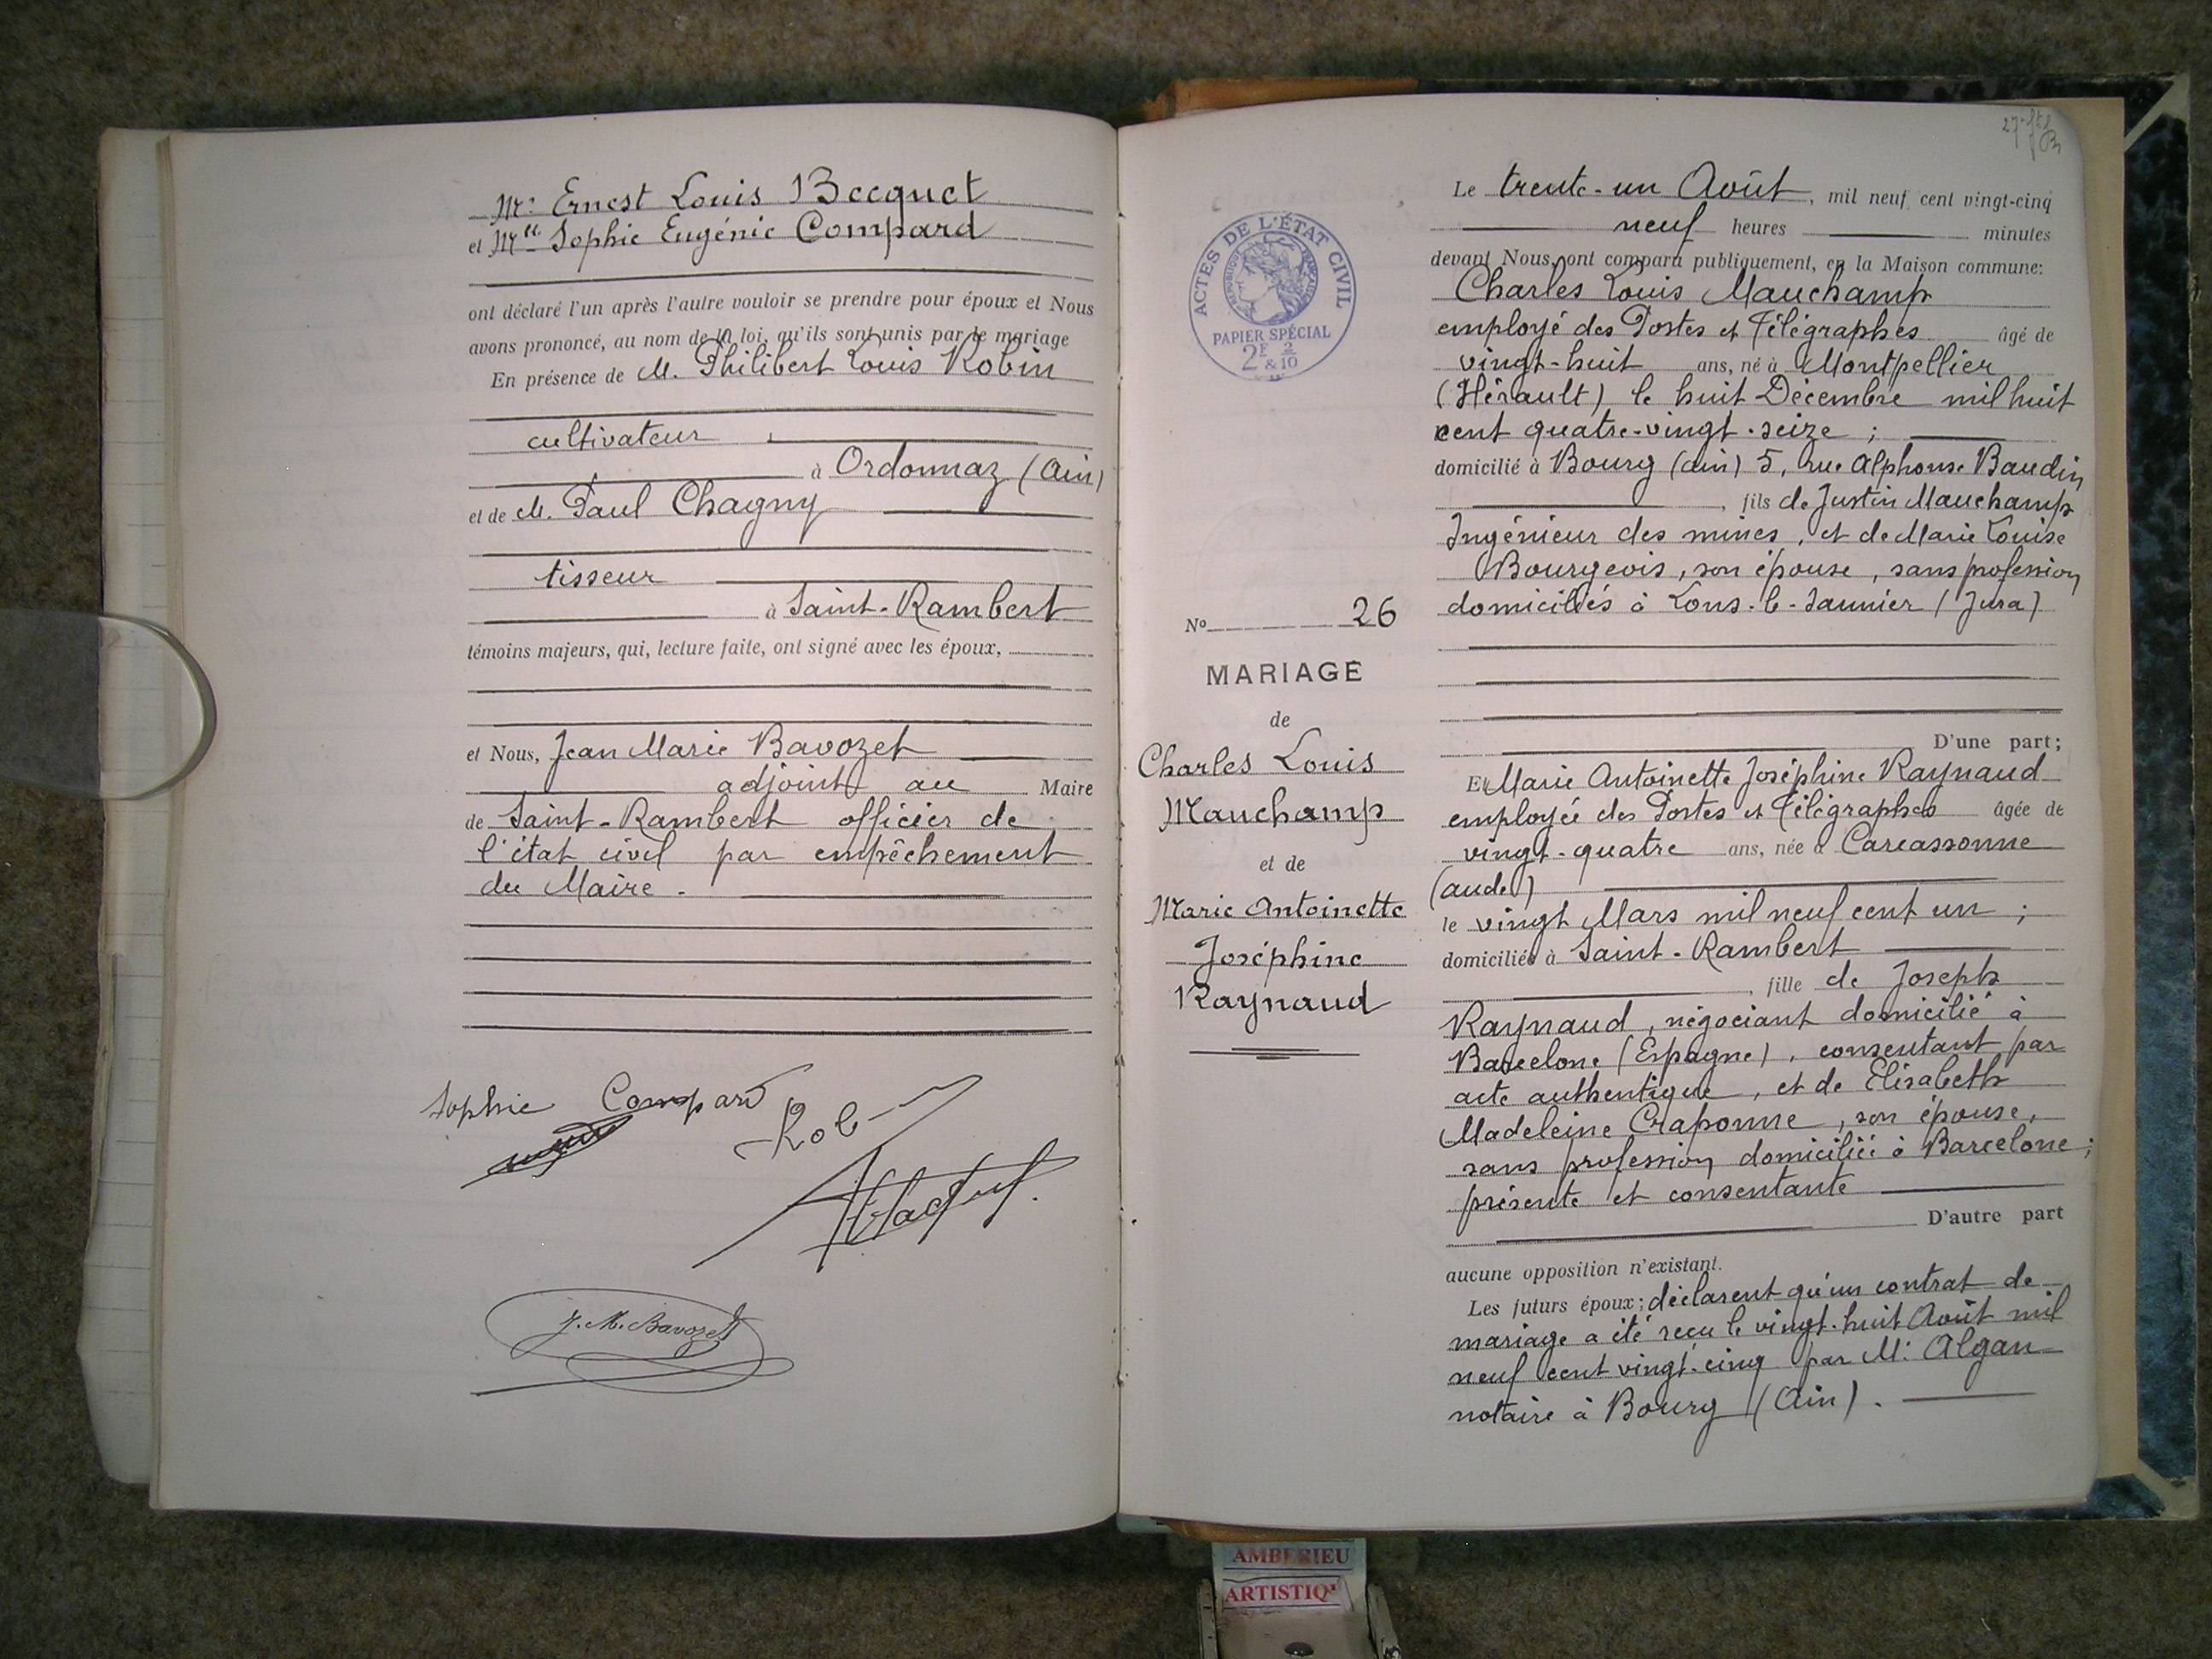 Mr. Ernest Louis Becquet
et Mlle Sophie Eugénie Compard
ont déclaré l'un après l'autre vouloir se prendre pour époux et Nous
avons prononcé, au nom de la loi, qu'ils sont unis par le mariage
En présence de M. Philibert Louis Robin
cultivateur
à Ordonnaz (Ain)
et de M. Paul Chagny
tisseur
à Saint-Rambert
témoins majeurs, qui, lecture faite, ont signé avec les époux,
et Nous, Jean Marie Bavozet
adjoint au Maire
de Saint-Rambert officier de
l'état civil par empêchement
du Maire.
Sophie Compard
J. M. Bavozet
ACTES DE L'ÉTAT CIVIL
RÉPUBLIQUE FRANÇAISE
PAPIER SPÉCIAL
2F 2/10
& 10
No 26
MARIAGE
de
Charles Louis
Mauchamp
et de
Marie Antoinette
Joséphine
Raynaud
Le trente-un Août, mil neuf cent vingt-cinq
neuf heures minutes
devant Nous, ont comparu publiquement, en la Maison commune:
Charles Louis Mauchamp
employé des Postes et Télégraphes âgé de
vingt-huit ans, né à Montpellier
(Hérault) le huit Décembre mil huit
cent quatre-vingt-seize ;
domicilié à Bourg (Ain) 5, rue Alphonse Baudin
, fils de Justin Mauchamp
Ingénieur des mines, et de Marie Louise
Bourgeois, son épouse, sans profession
domiciliés à Lons-le-Saunier (Jura)
D'une part;
Et Marie Antoinette Joséphine Raynaud
employée des Postes et Télégraphes âgée de
vingt-quatre ans, née à Carcassonne
(Aude)
le vingt Mars mil neuf cent un ;
domiciliée à Saint-Rambert
, fille de Joseph
Raynaud, négociant domicilié à
Barcelone (Espagne), consentant par
acte authentique, et de Elisabeth
Madeleine Craponne, son épouse,
sans profession domiciliée à Barcelone ;
présente et consentante
D'autre part
aucune opposition n'existant.
Les futurs époux; déclarent qu'un contrat de
mariage a été reçu le vingt-huit Août mil
neuf cent vingt-cinq par Me Algan
notaire à Bourg (Ain).
AMBERIEU
ARTISTIQ